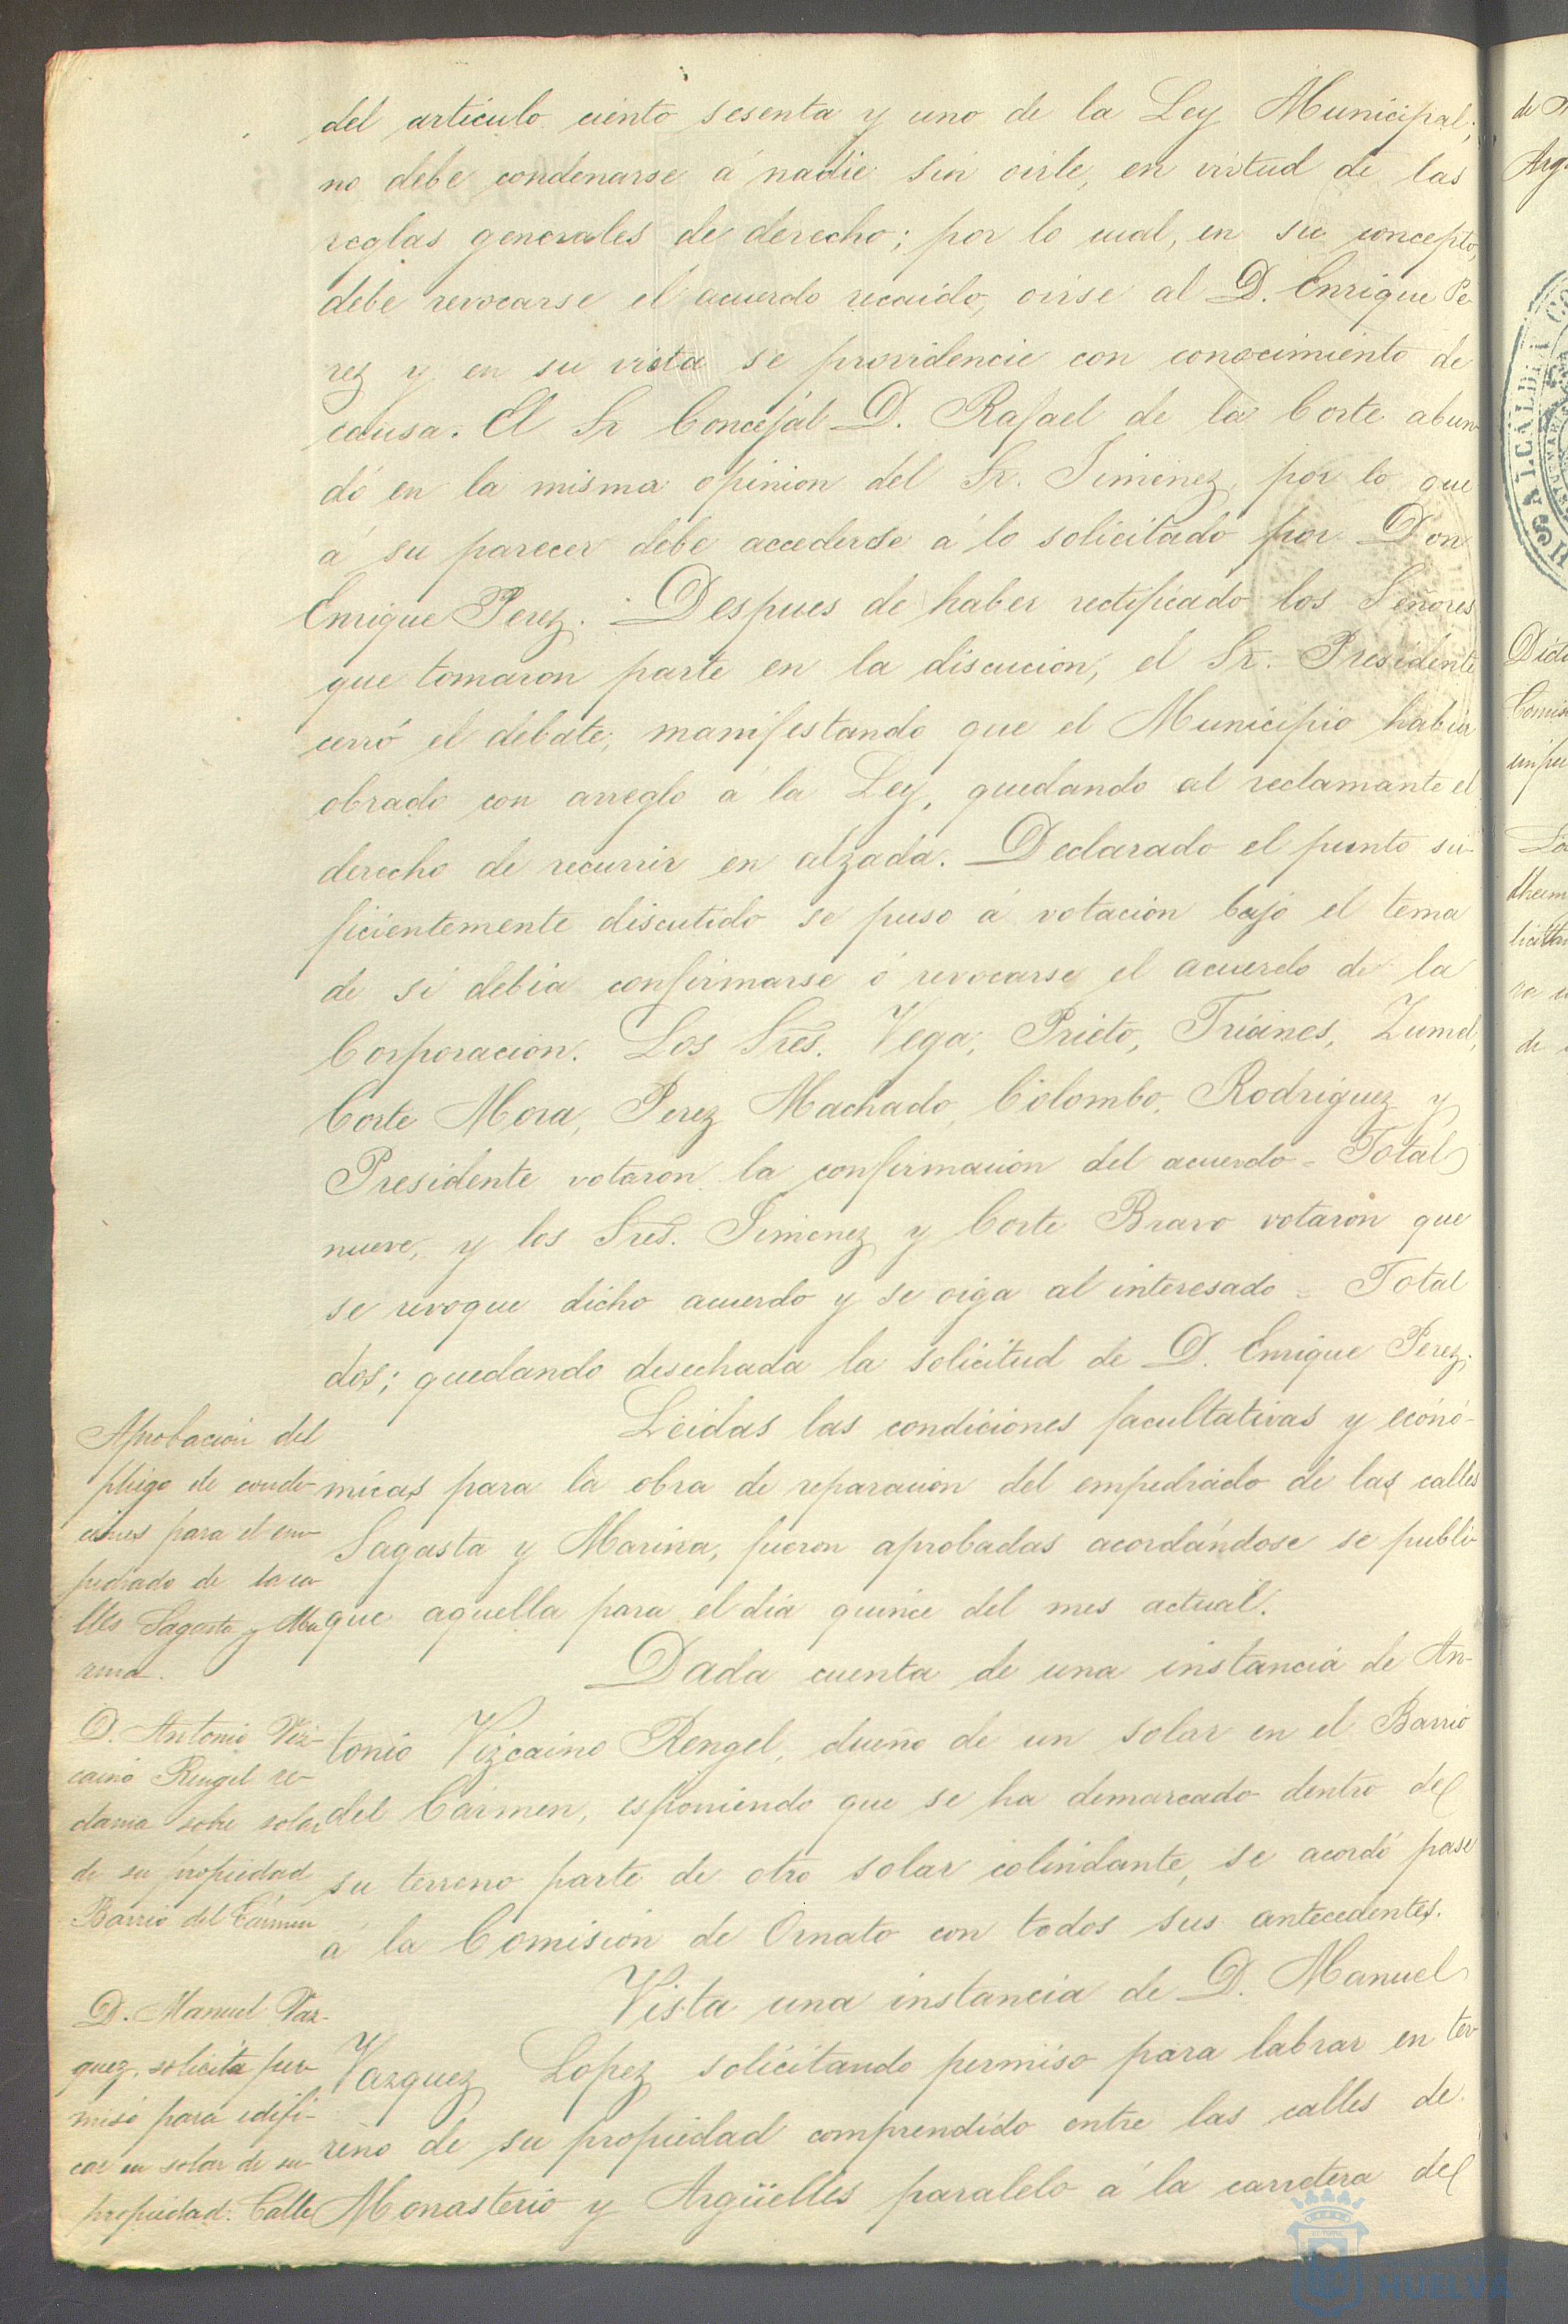 del articulo ciento sesenta y uno de la Ley Municipal;
no debe condenarse á nadie sin oirle, en virtud de las
reglas generales de derecho; por lo cual, en su concepto,
debe revocarse el acuerdo recaido, oirse al D. Enrique Pe-
rez y en su vista se providencie con conocimiento de
causa. El Sr Concejal D. Rafael de la Corte abun-
dó en la misma opinion del Sr. Jimenez, por lo que
á su parecer debe accederse á lo solicitado por Don
Enrique Perez. Despues de haber rectificado los Señores
que tomaron parte en la discucion, el Sr. Presidente
cerró el debate, manifestando que el Municipio habia
obrado con arreglo á la Ley, quedando al reclamante el
derecho de recurrir en alzada. Declarado el punto su-
ficientemente discutido se puso á votacion bajo el tema
de si debia confirmarse ó revocarse el acuerdo de la
Corporacion. Los Sres. Vega, Prieto, Trianes,
Corte Mora, Perez Machado, Colombo, Rodriguez y
Presidente votaron la confirmacion del acuerdo = Total
nueve, y los Sres. Jimenez y Corte Bravo votaron que
se revoque dicho acuerdo y se oiga al interesado = Total
dos; quedando desechada la solicitud de D. Enrique Perez.
Aprobacion del
pliego de condi-
ciones para el em-
pedrado de la ca-
lles Sagasta y Ma-
rina.
Leidas las condiciones facultativas y econó-
micas para la obra de reparacion del empedrado de las calles
Sagasta y Marina, fueron aprobadas acordándose se publi-
que aquella para el dia quince del mes actual.
D. Antonio Viz-
caino Rengel re-
clama sobre solar
de su propiedad
Barrio del Cármen
Dada cuenta de una instancia de An-
tonio Vizcaino Rengel, dueno de un solar en el Barrio
del Cármen, esponiendo que se ha demarcado dentro de
su terreno parte de otro solar colindante, se acordó pase
á la Comision de Ornato con todos sus antecedentes.
D. Manuel Vaz-
quez, solicita per-
miso para edifi-
car en solar de su
propiedad. Calle
Vista una instancia de D. Manuel
Vazquez Lopez solicitando permiso para labrar en ter-
reno de su propiedad comprendido entre las calles de
Monasterio y Argüelles paralelo á la carretera del
HUELVA